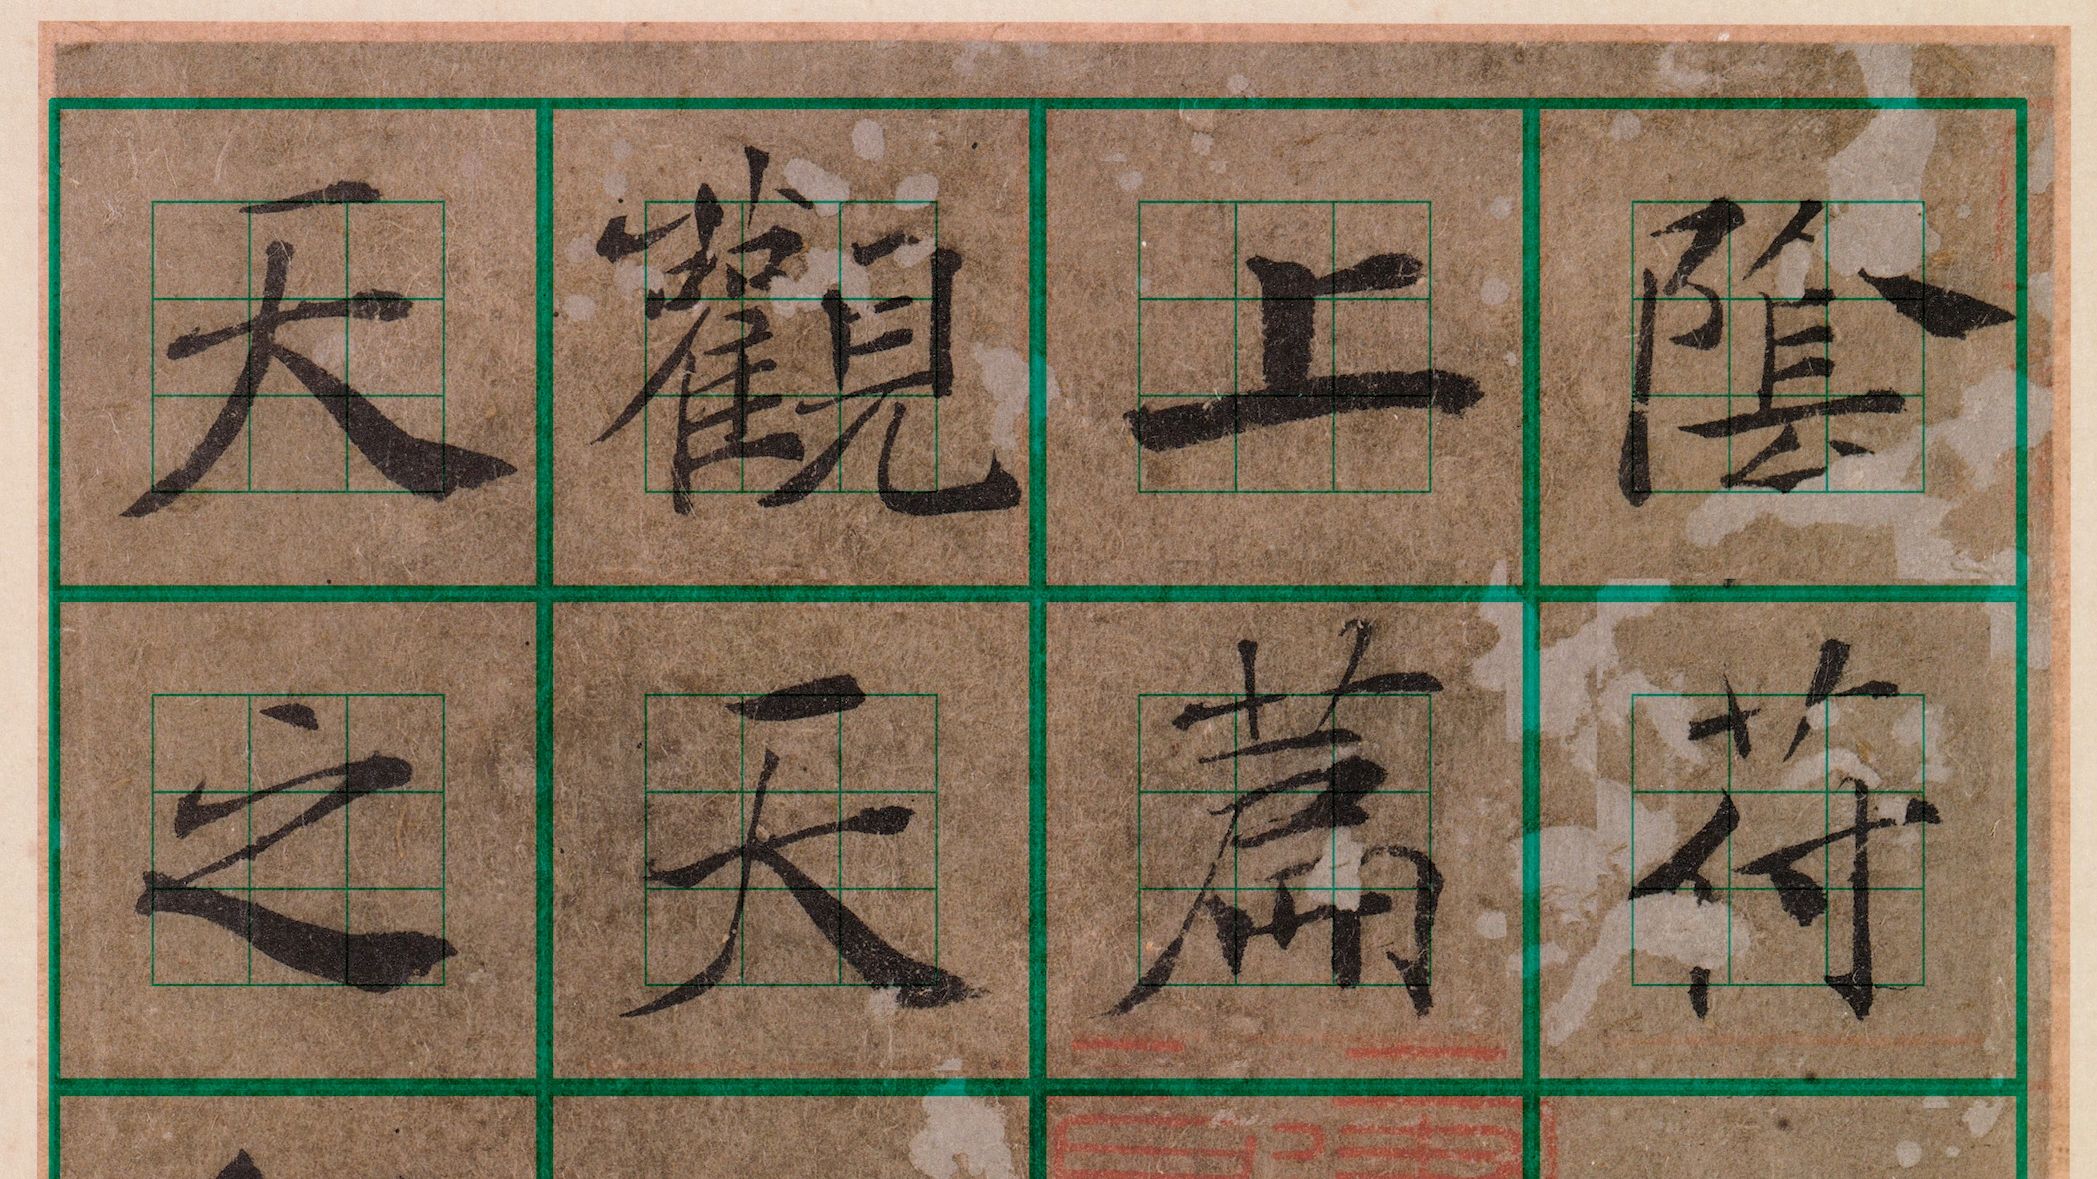 陰符
上萹
觀天
天之